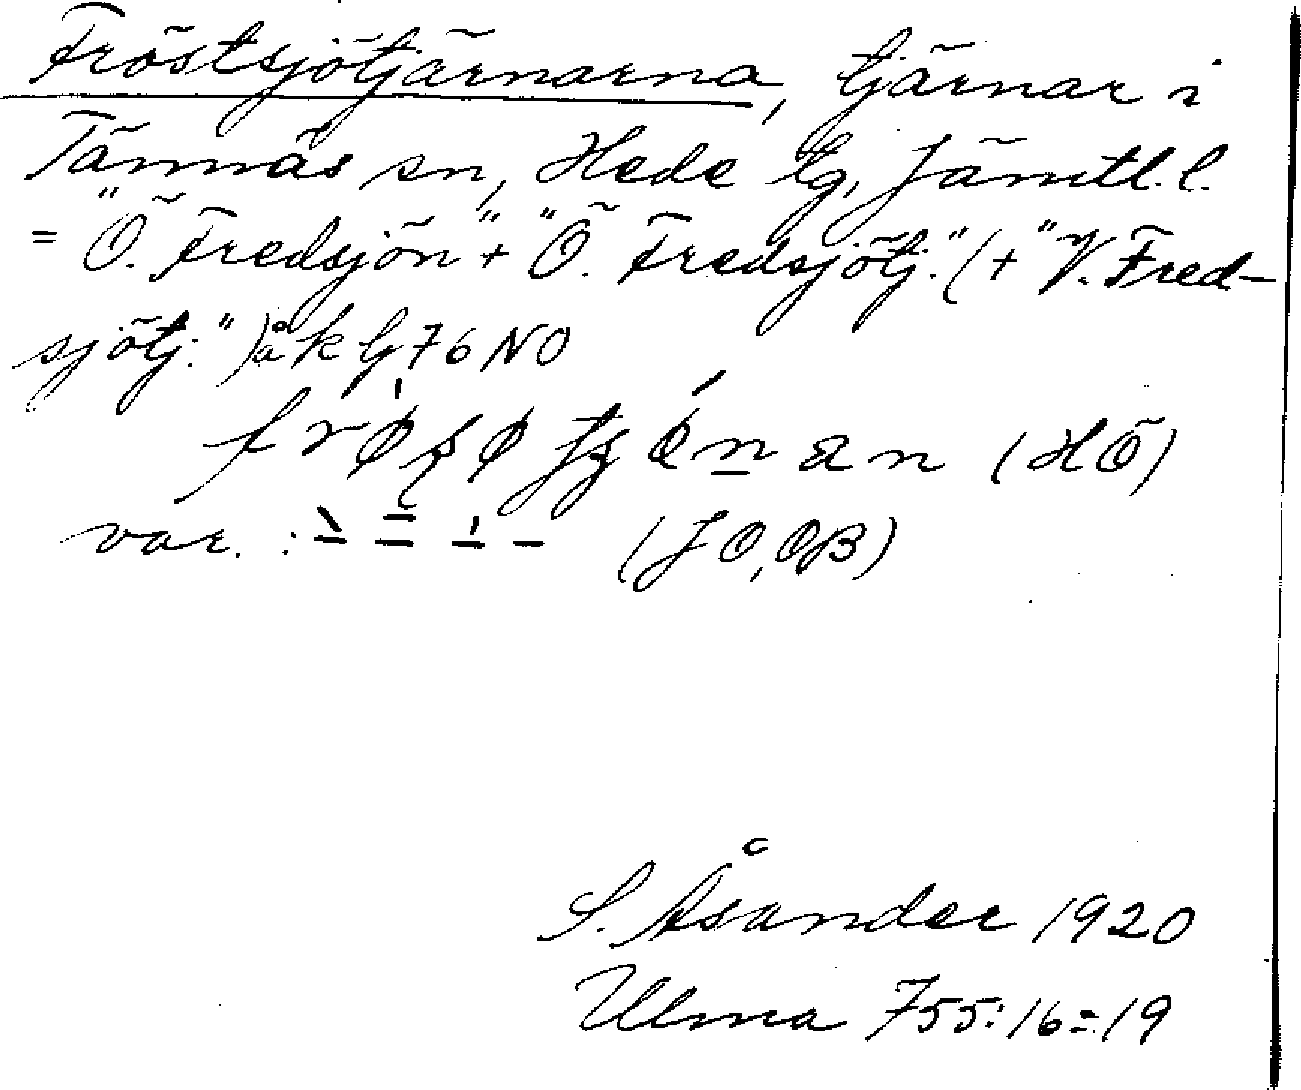 Fröstsjötjärnarna, tjärnar i
Tännäs sn, Hede tg, Jämtl. l.
= "Ö. Fredsjön" + "Ö. Fredsjötj." (+ "V. Fred-
sjötj.") åk G76NO
(HÖ)
var. : (JO, OB)
S. Åsander 1920
Ulma 755:16=19